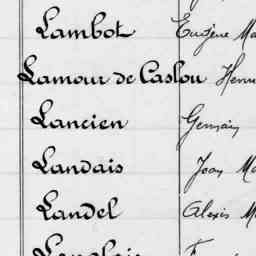 Lambot Eugène Ma
Lamour de Caslou Henri
Lancien Germain
Landais Jean Ma
Landel Alexis M
Langlois